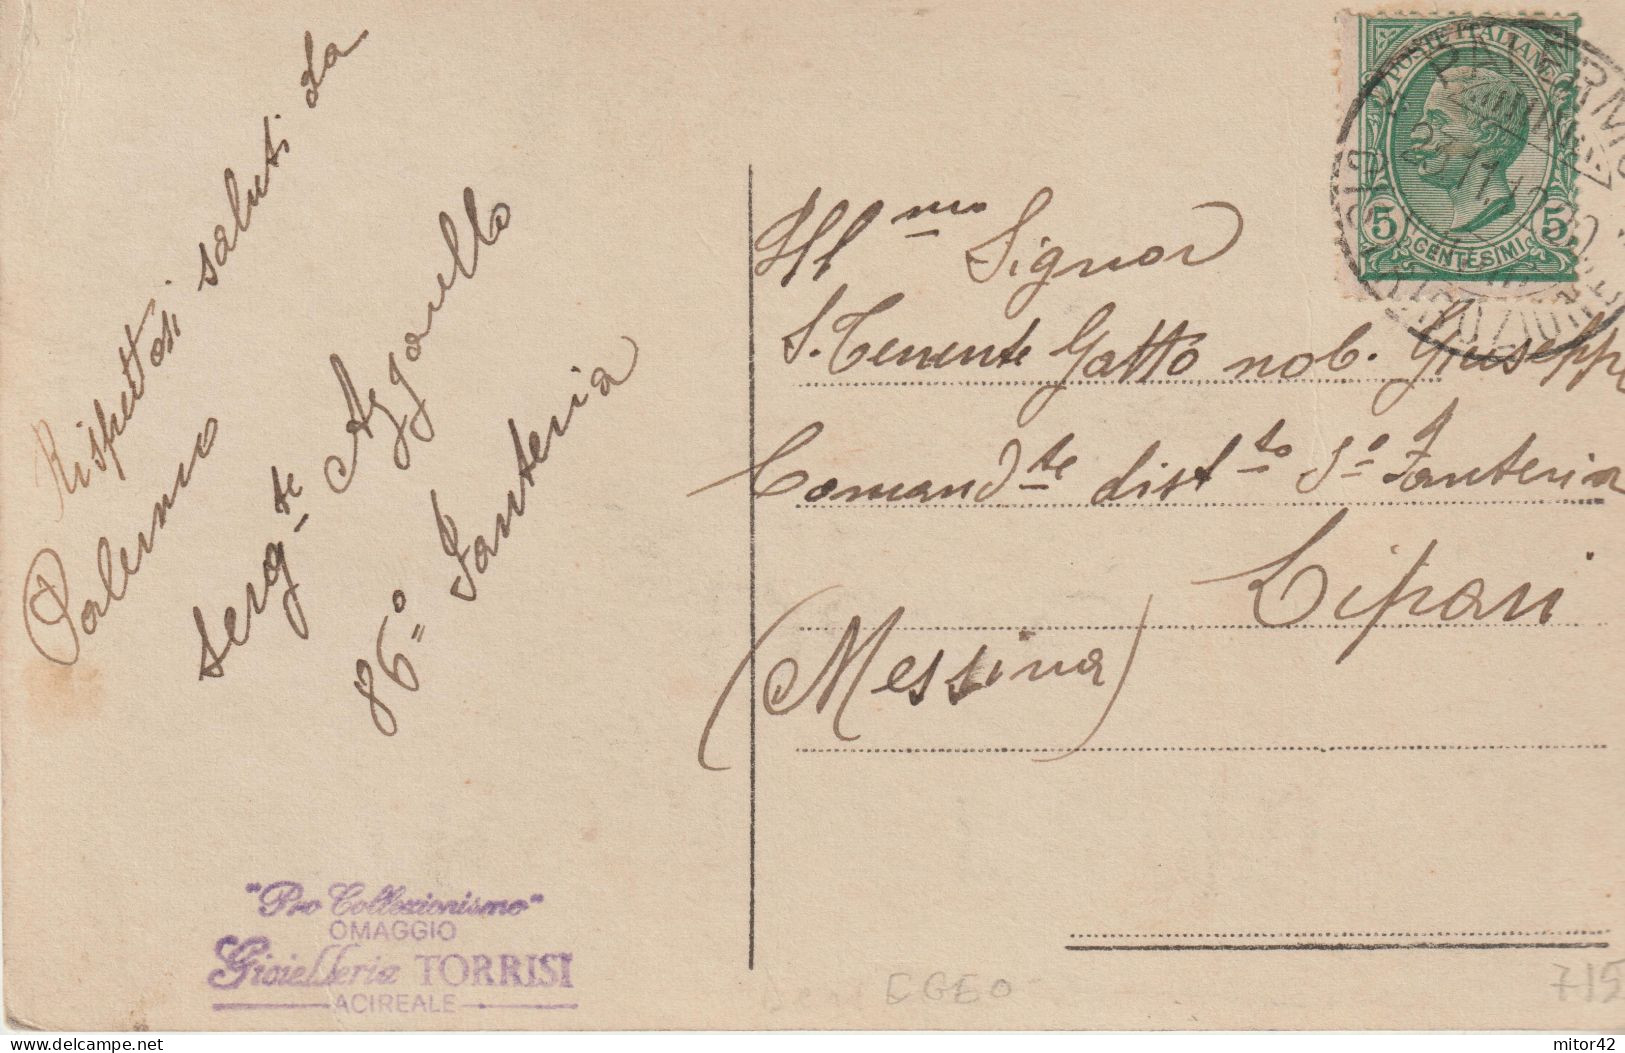 Rispettosi saluti da
Palermo
Serg.te Azzarello
86.o Fanteria
"Pro Collezionismo"
OMAGGIO
Gioielleria TORRISI
ACIREALE
POSTE ITALIANE
5 CENTESIMI 5
PALERMO
23.11.12
Ill mo Signor
S. Tenente Gatto nob. Giuseppe
Comand te dist to 5o Fanteria
Lipari
(Messina)
EGEO
715
delcampe.net
mitor42